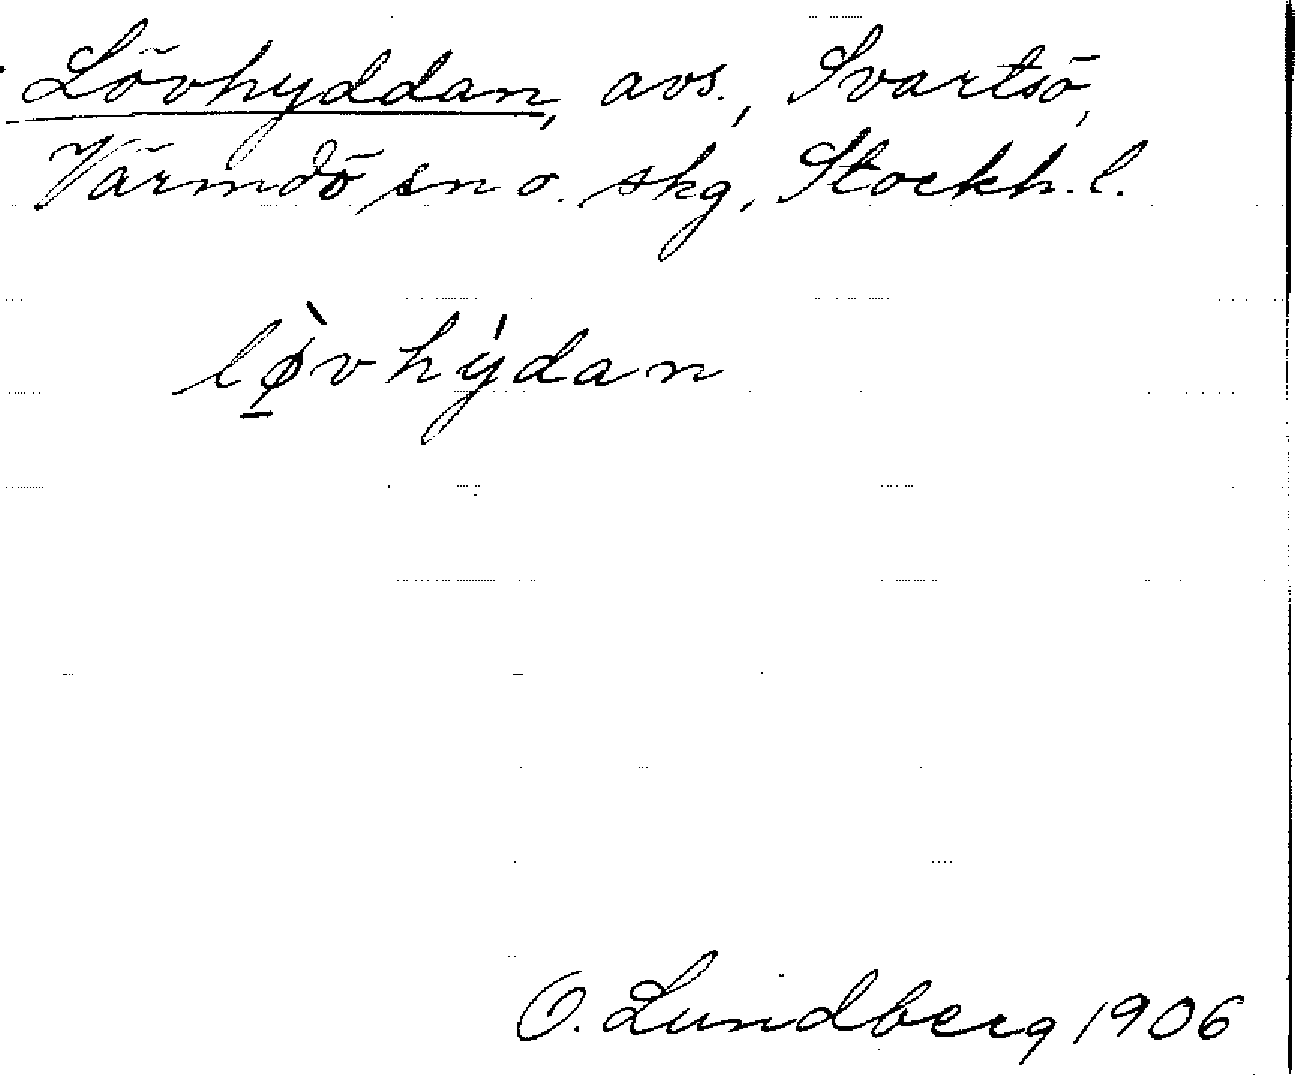 Lövhyddan, avs., Svartsö,
Värmdö sn o. skg, Stockh. l.
lø̱̀vhýdan
O. Lundberg 1906